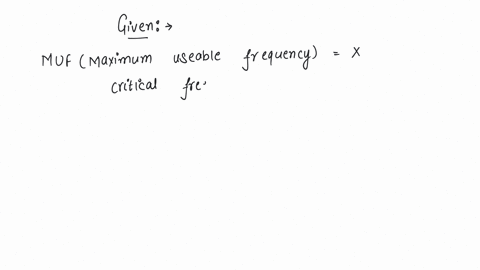 Given:→
MUF (Maximum useable frequency) = X
critical fre